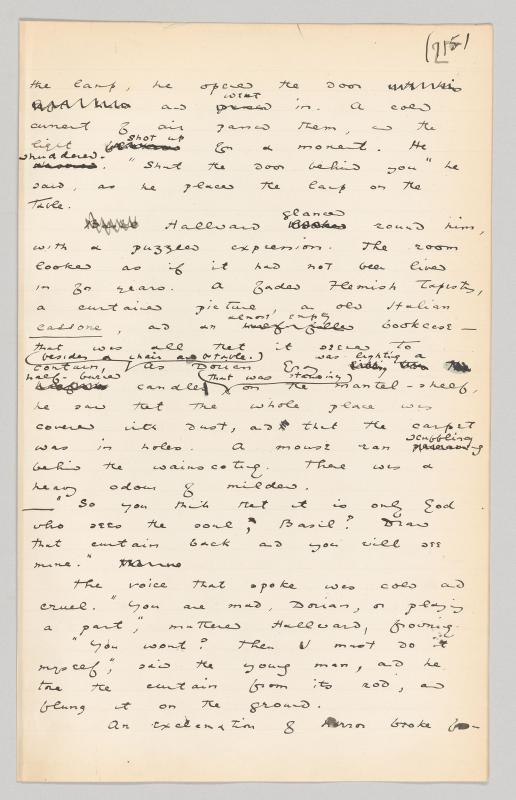 (215)
the lamp, he opened the door
and went in. A cold
current of air passed them, and the
light shot up for a moment. He
shuddered. "Shut the door behind you" he
said, as he placed the lamp on the
table.
Hallward glanced round him,
with a puzzled expression. The room
looked as if it had not been lived
in for years. A faded Flemish tapestry,
a curtained picture, an old Italian
cassone, and an almost empty bookcase –
that was all that it seemed to
contain, (besides a chair and a table.) As Dorian Gray was lighting a
half-burned candle (that was standing) on the mantel-shelf,
he saw that the whole place was
covered with dust, and that the carpet
was in holes. A mouse ran scuffling
behind the wainscoting. There was a
heavy odour of mildew.
"So you think that it is only God
who sees the soul, Basil? Draw
that curtain back and you will see
mine."
The voice that spoke was cold and
cruel. "You are mad, Dorian, or playing
a part," muttered Hallward, frowning.
"You won't? Then I must do it
myself", said the young man, and he
tore the curtain from its rod, and
flung it on the ground.
An exclamation of horror broke